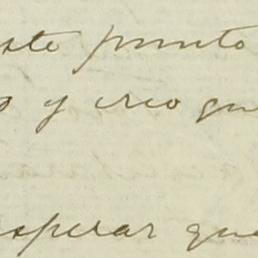 este punto
o y creo que
esperar que